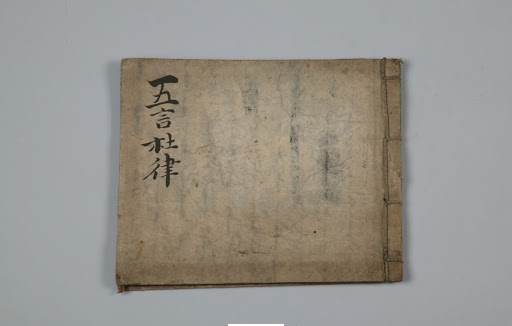 五言杜律